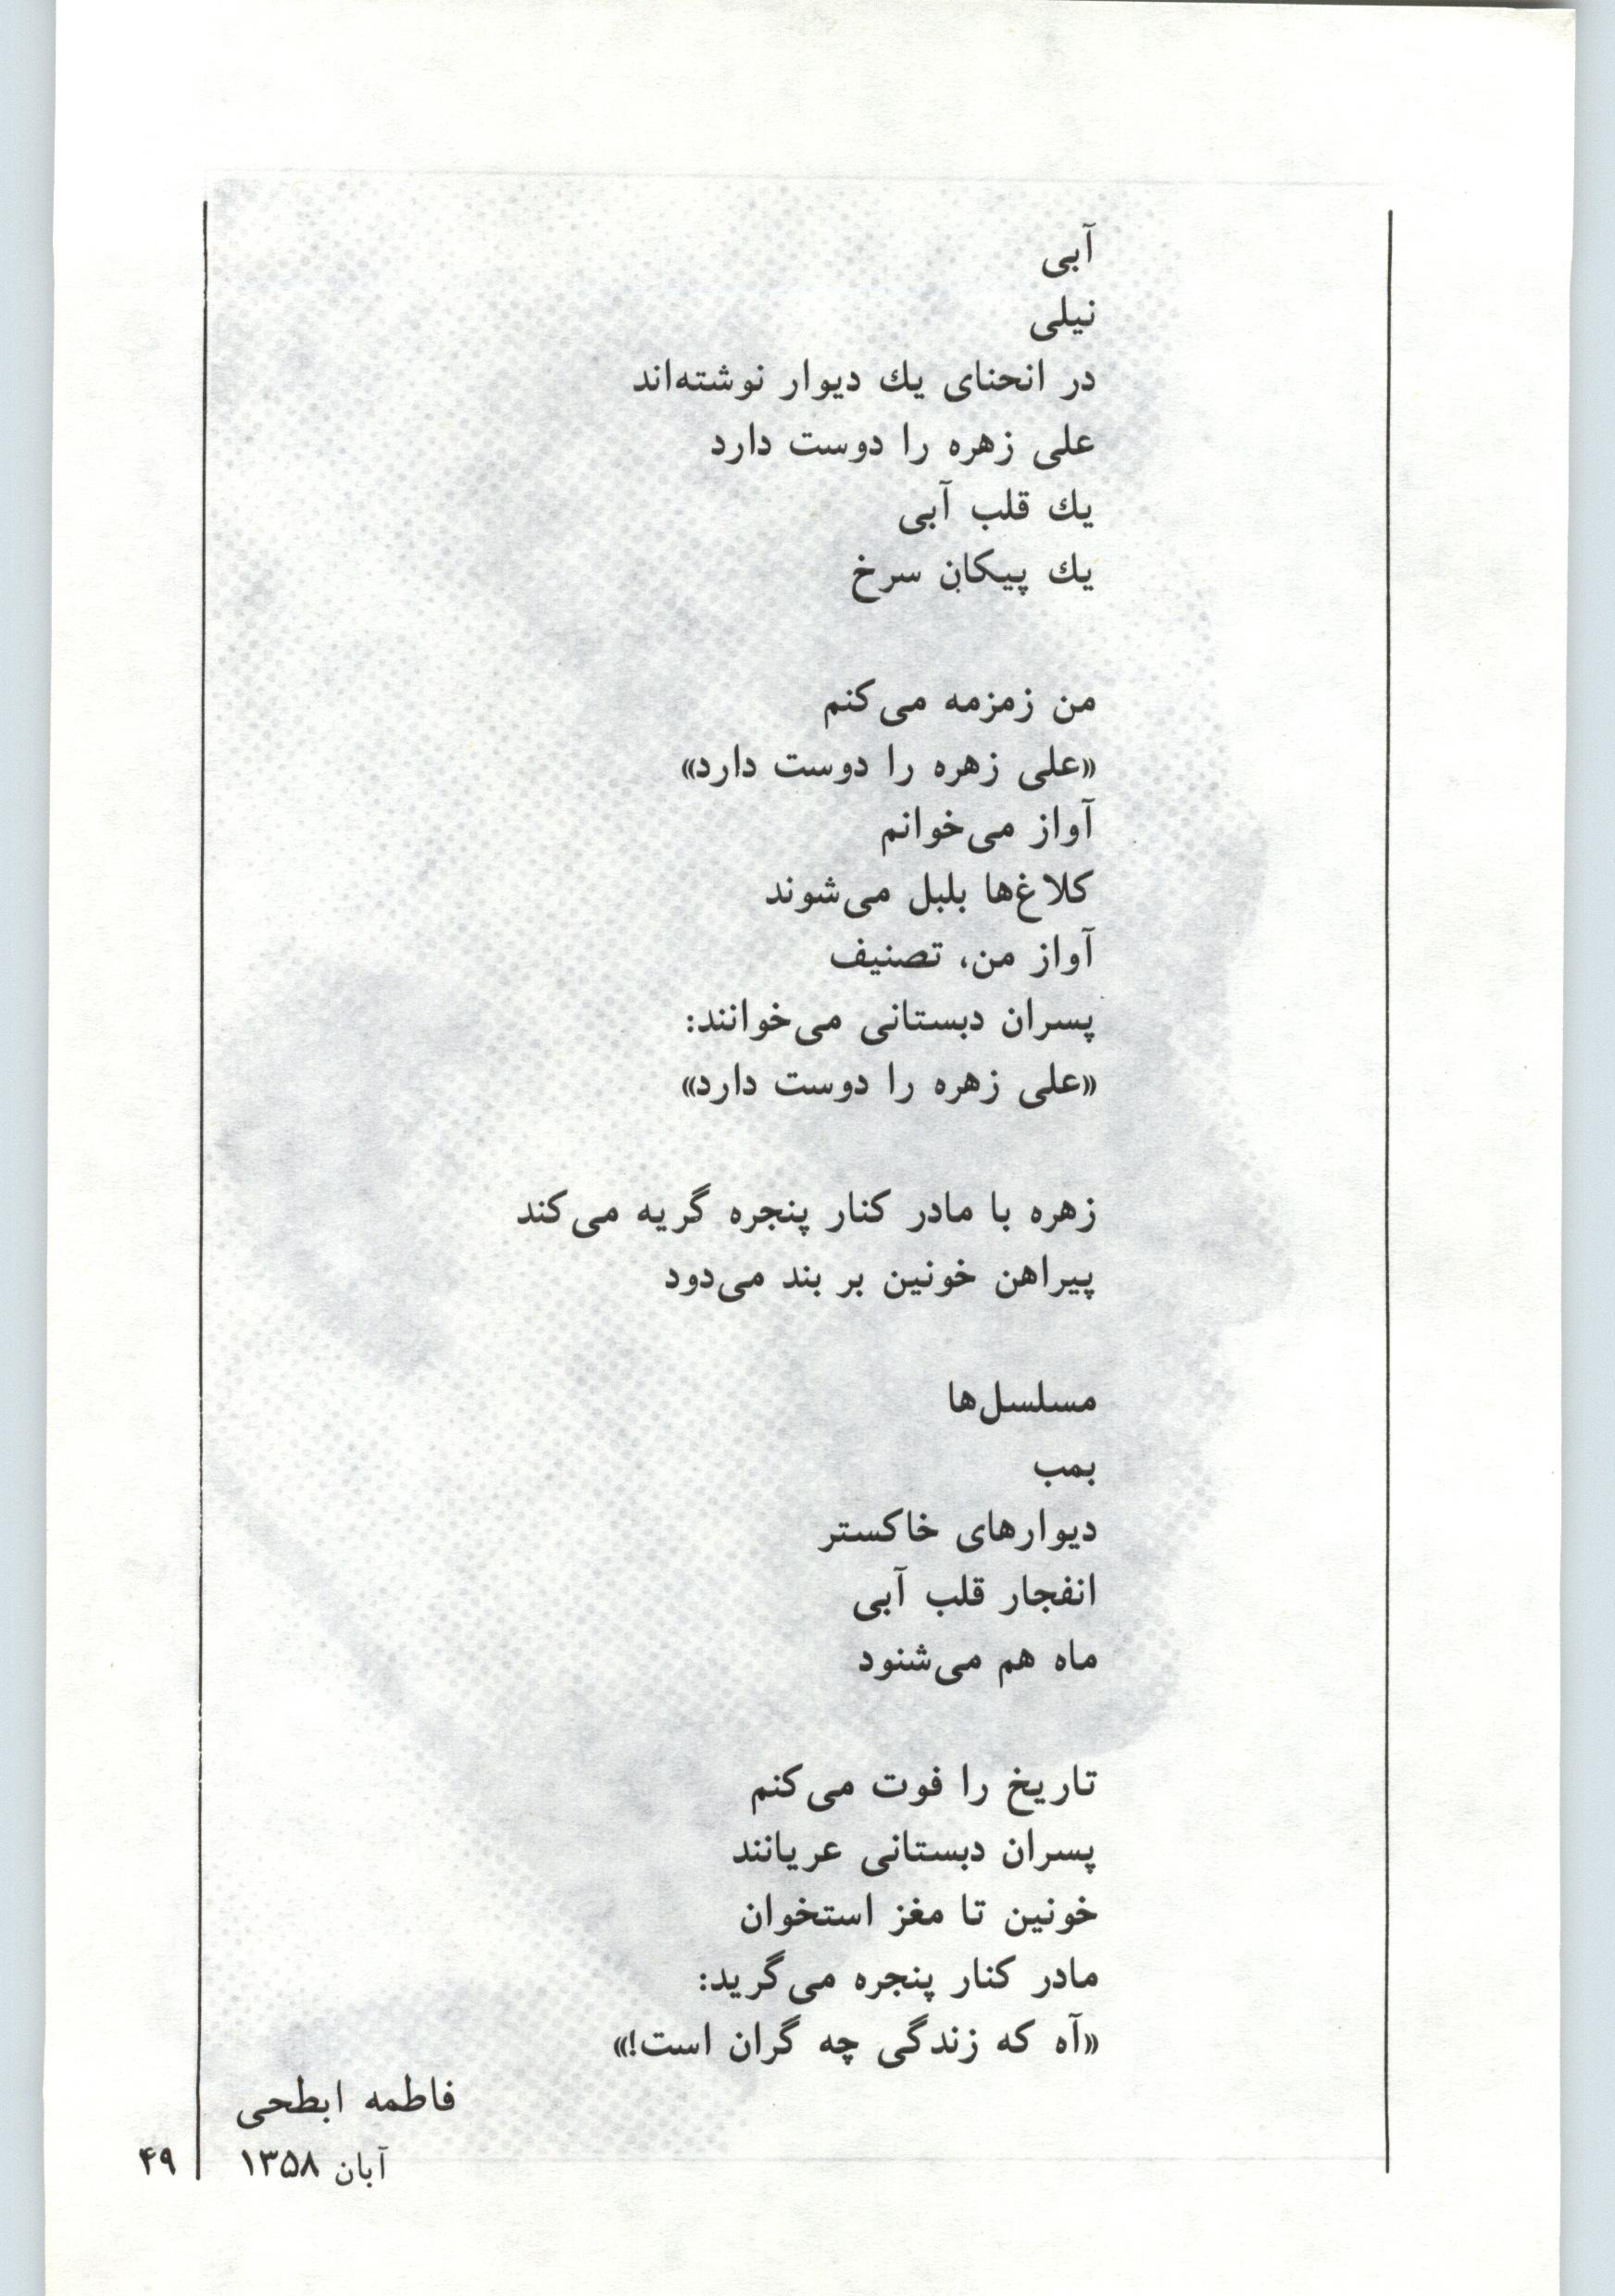 آبی
نیلی
در انحنای یك دیوار نوشته‌اند
علی زهره را دوست دارد
یك قلب آبی
یك پیکانِ سرخ
من زمزمه می‌کنم
«علی زهره را دوست دارد»
آواز می‌خوانم
کلاغ‌ها بلبل می‌شوند
آواز من، تصنیف
پسران دبستانی می‌خوانند:
«علی زهره را دوست دارد»
زهره با مادر کنار پنجره گریه می‌کند
پیراهن خونین بر بند می‌دود
مسلسل‌ها
بمب
دیوارهای خاکستر
انفجار قلب آبی
ماه هم می‌شنود
تاریخ را فوت می‌کنم
پسران دبستانی عریانند
خونین تا مغز استخوان
مادر کنار پنجره می‌گرید:
«آه که زندگی چه گران است!»
فاطمه ابطحی
آبان ۱۳۵۸
۴۹